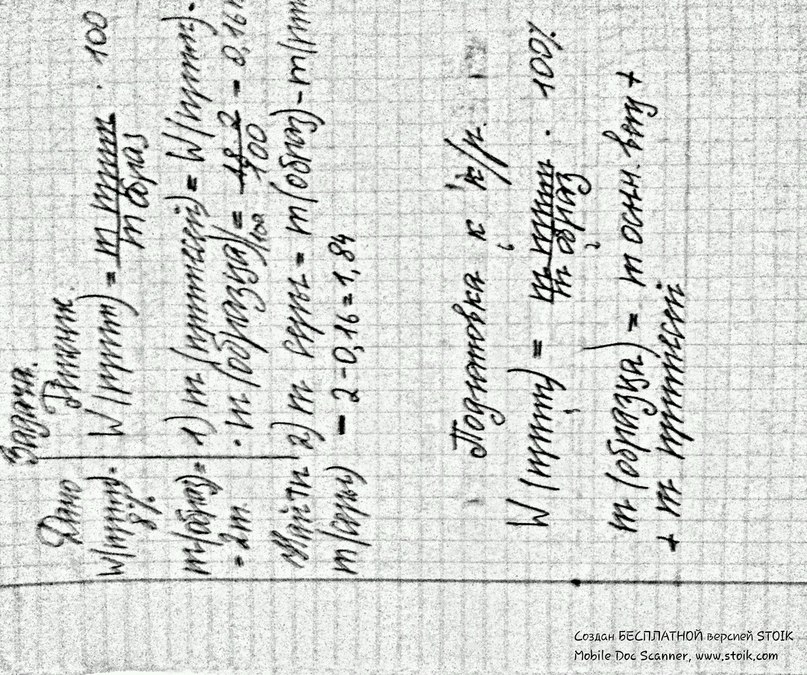 Задача.
Дано Решение.
W(прим)= 8%
W(прим) = m прим / m образ · 100
m(образ)= = 2т
1) m(примесей) = W(прим) ·
· m(образца)/100 = 8 · 2 / 100 = 0,16т
Найти
m(серы)
2) m серы = m(образ) – m(прим
= 2 – 0,16 = 1,84
Подготовка к к/р.
W(прим) = m прим / m образ · 100%
m(образца) = m осн. вещ +
+ m примесей
Создан БЕСПЛАТНОЙ версией STOIK
Mobile Doc Scanner, www.stoik.com